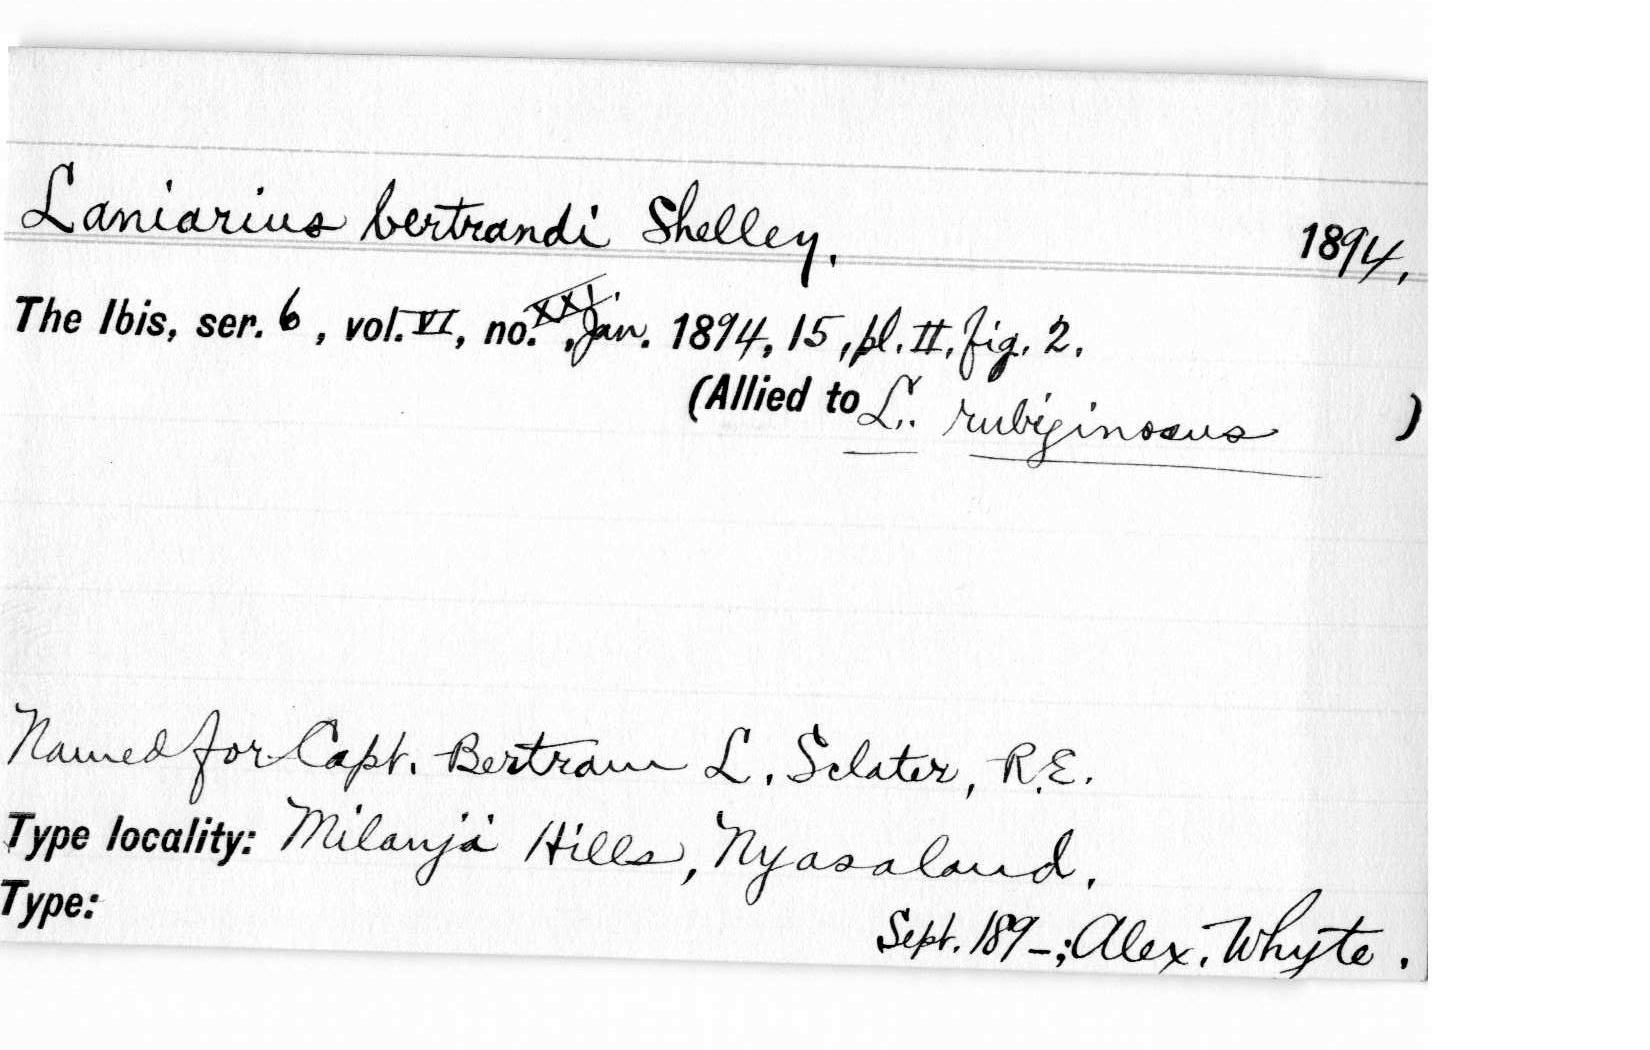 Laniarius bertrandi Shelley. 1894.
The Ibis, ser. 6, vol. VI, no. XXI, Jan. 1894, 15, pl. II, fig. 2.
(Allied to L. rubiginosus )
Named for Capt. Bertram L. Sclater, R.E.
Type locality: Milanji Hills, Nyasaland.
Type:
Sept. 189-; Alex. Whyte.